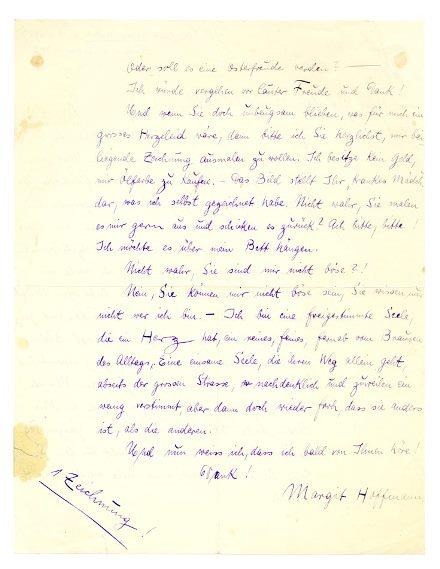 Oder soll es eine Osterfreude werden? —
Ich würde vergehen vor lauter Freude und Dank!
Und wenn Sie doch unbeugsam blieben, was für mich ein
grosses Herzeleid wäre, dann bitte ich Sie herzlichst, mir bei-
liegende Zeichnung ausmalen zu wollen. Ich besitze kein Geld,
mir Ölfarbe zu kaufen. – Das Bild stellt Ihr "krankes Mädch
dar, was ich selbst gezeichnet habe. Nicht wahr, Sie malen
es mir gern aus und schicken es zurück? Ach bitte, bitte!
Ich möchte es über mein Bett hängen.
Nicht wahr, Sie sind mir nicht böse?!
Nein, Sie können mir nicht böse sein, Sie wissen nur
nicht wer ich bin. – Ich bin eine freigestimmte Seele,
die ein Herz hat, ein reines, feines fernab vom Brausen
des Alltags. Eine einsame Seele, die ihren Weg allein geht,
abseits der grossen Strasse, nachdenklich und zuweilen ein
wenig verstimmt aber dann doch wieder froh, dass sie anders
ist, als die anderen.
Und nun weiss ich, dass ich bald von Ihnen höre!
Dank!
Margit Hoffmann
1 Zeichnung!